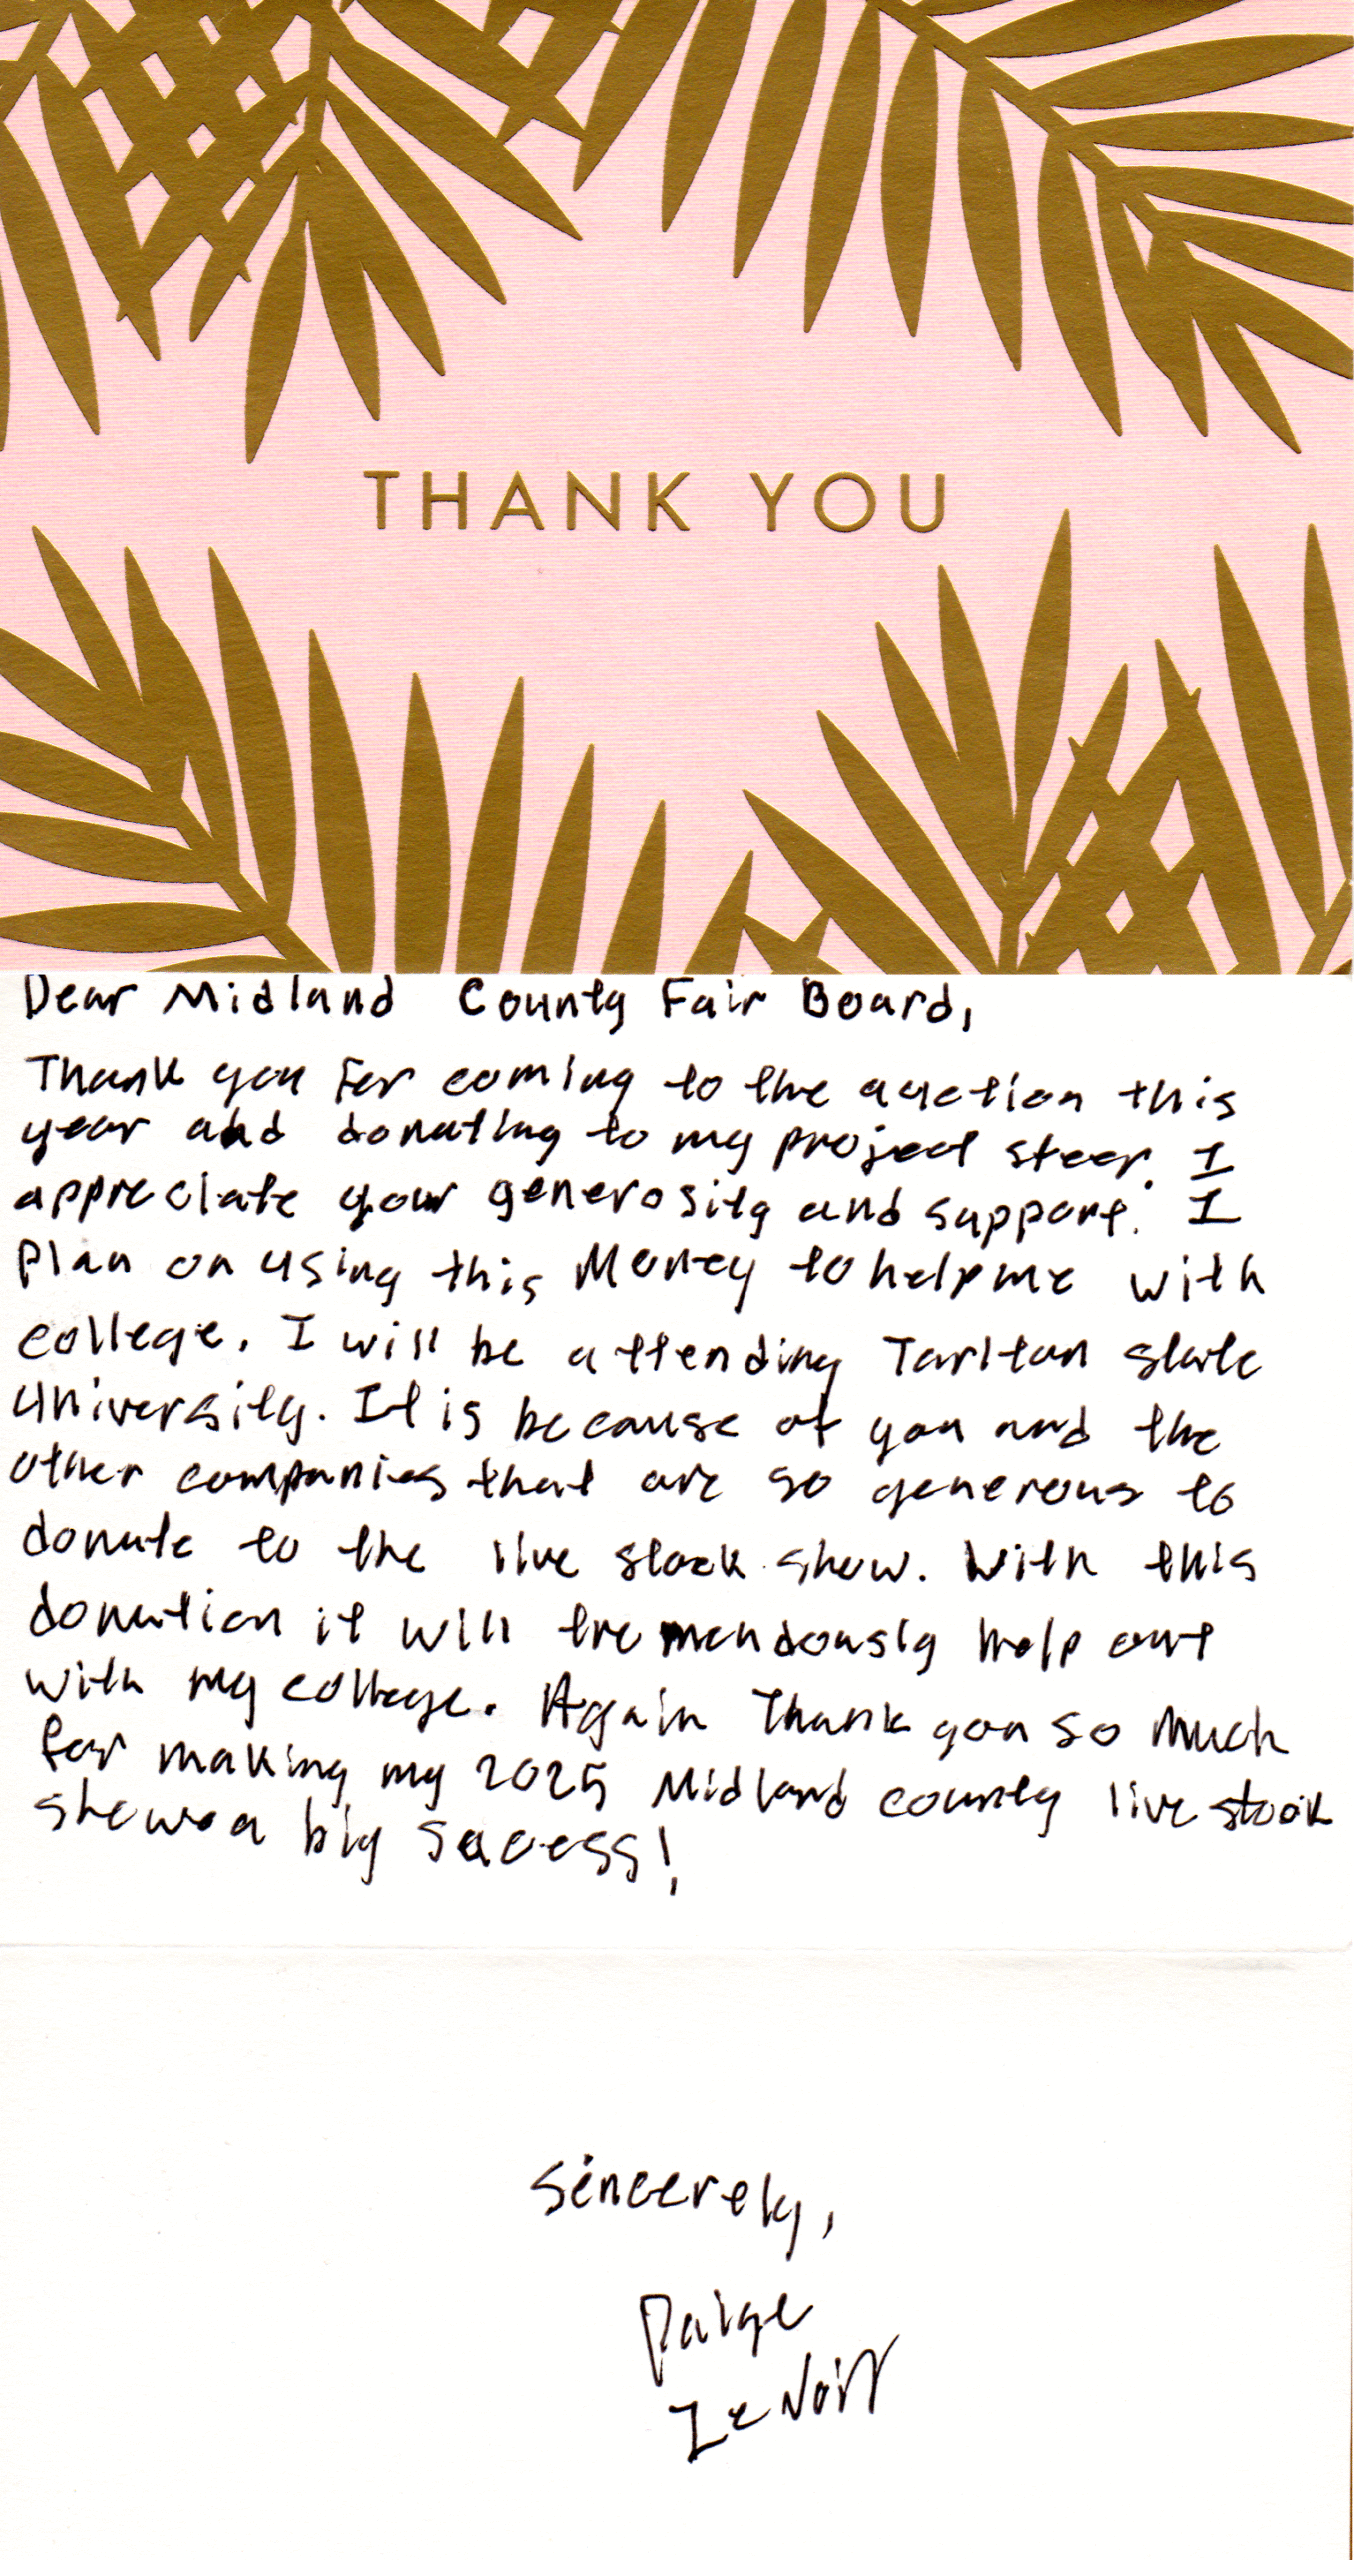 THANK YOU
Dear Midland County Fair Board,
Thank you for coming to the auction this
year and donating to my project steer. I
appreciate your generosity and support. I
plan on using this Money to help me with
college. I will be attending Tarltan state
university. It is because of you and the
other companies that are so generous to
donate to the live stock show. With this
donation it will tremendously help out
with my college. Again Thank you so much
for making my 2025 Midland county live stock
show a big sucess!
Sincerely,
Paige
LeNoir